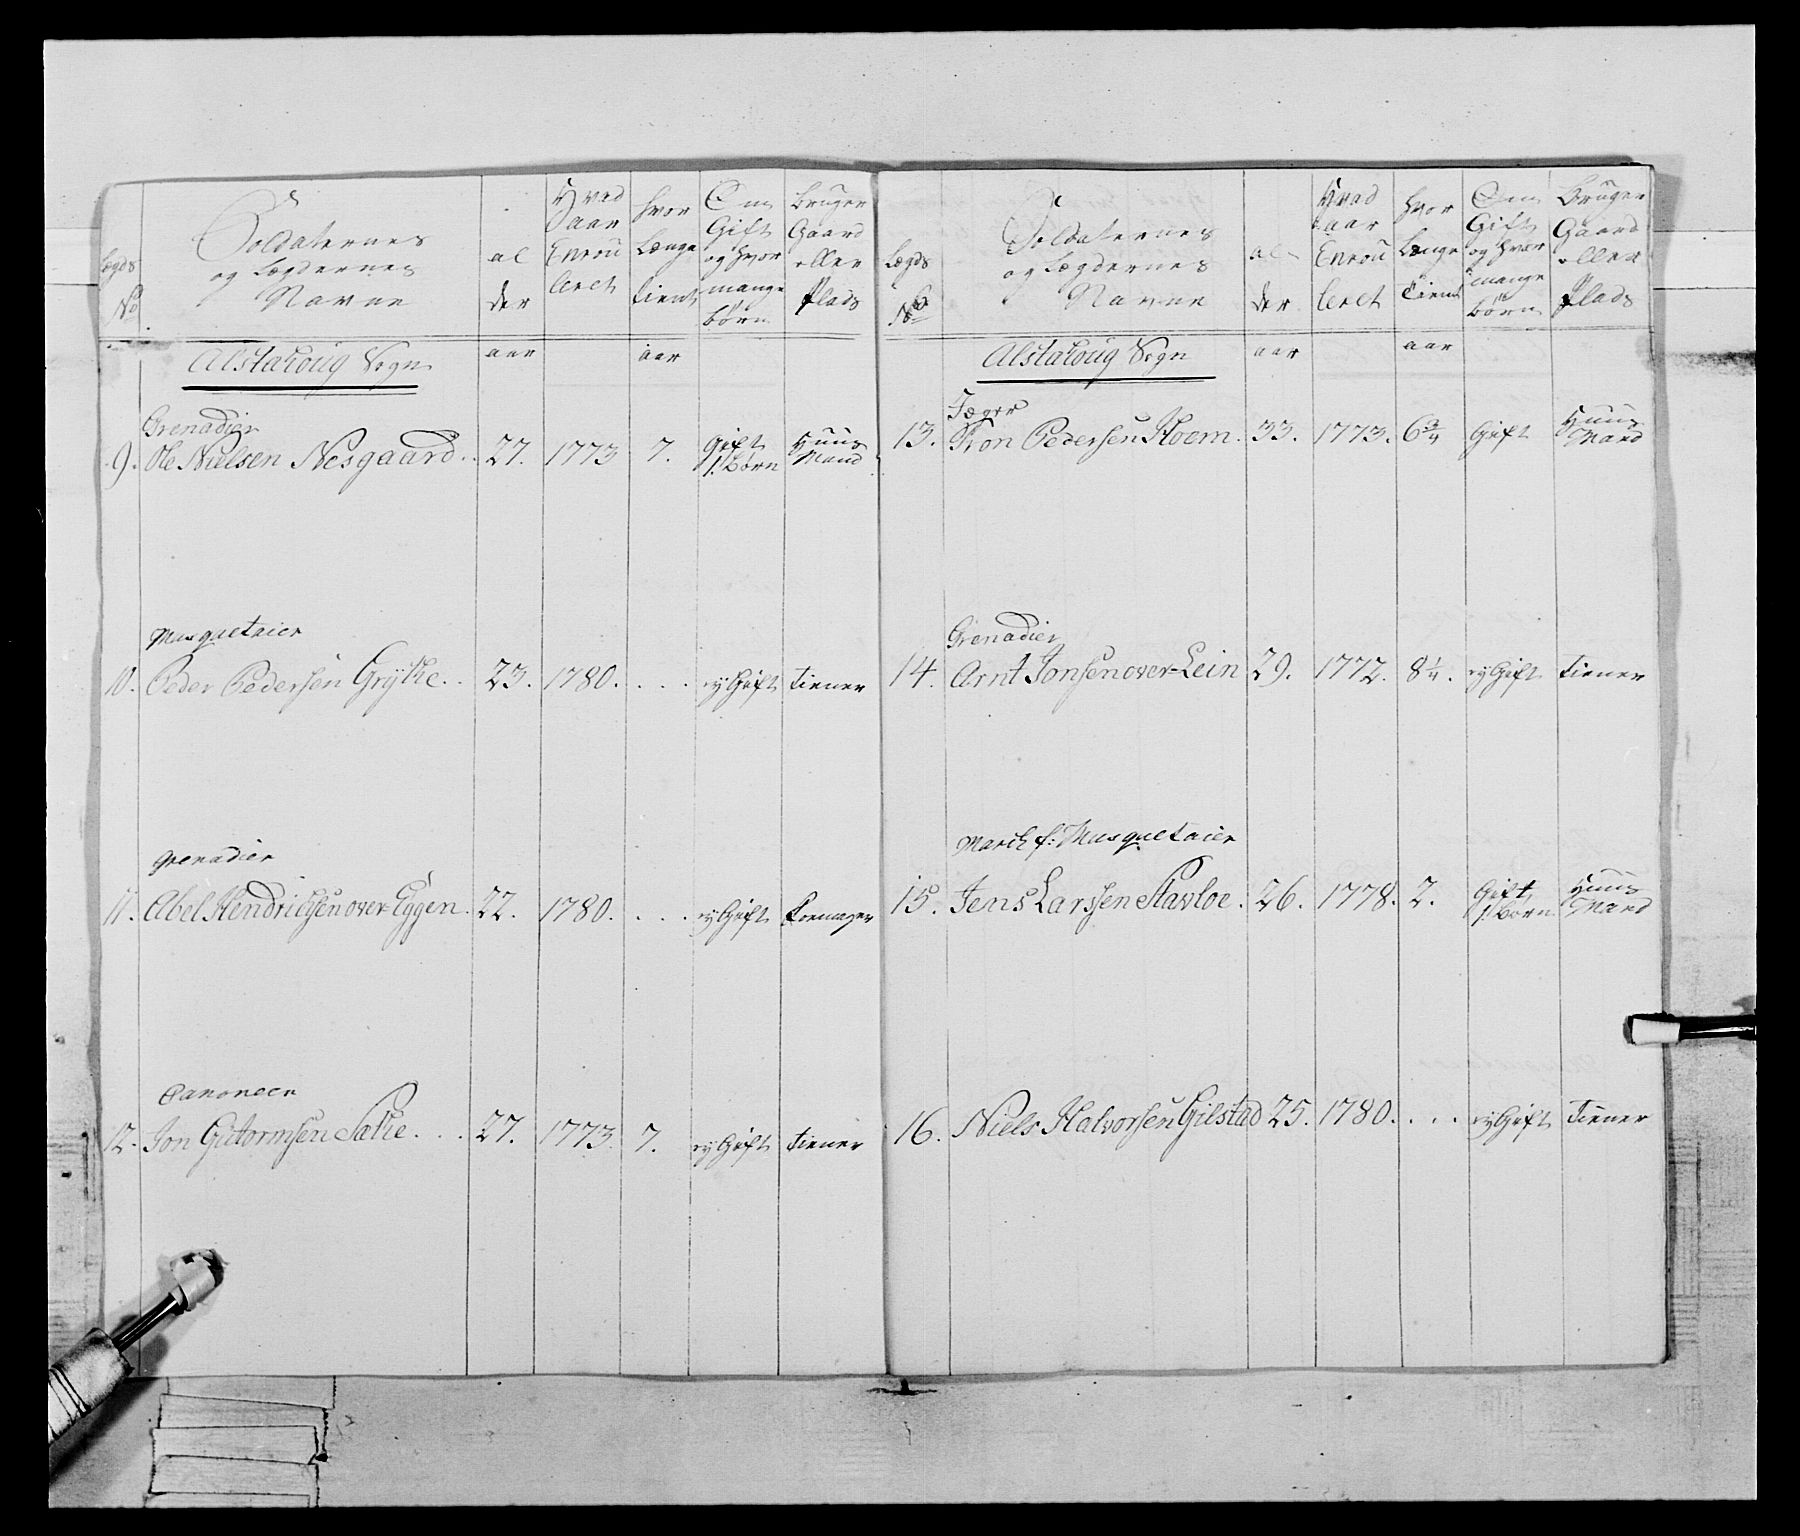 Lægds
No
Soldaternes
og Lægdernes
Navne
al
der
Hvad
aar
Enrou
leret
hvor
Længe
tient
Om
Gift
og hvor
mange
børn
bruger
Gaard
eller
Plads
Alstahoug Sogn
aar
aar
Grenadier
9. Ole Nielsen Nesgaard. 27. 1773 7. Gift 1. børn Huus Mand
Musquetaier
10. Peder Pedersen Grÿthe. . 23. 1780. . . . ey Gift tiener
Grenadier
11. Abel Hendrichsen over Eggen. 22. 1780. . . . ey Gift
Canoneer
12. Jon Guttormsen Salie. . . . 27. 1773. 7. ey Gift tiener
Lægds
No
Soldaternes
og Lægdernes
Navne
al
der
Hvad
aar
Enrou
leret
hvor
Længe
tient
Om
Gift
og hvor
mange
børn
bruger
Gaard
eller
Plads
Alstahoug Sogn
aar
aar
Jæger
13. Pedersen Hoem. 33. 1773. 6 3/4 Gift Huus Mand
Grenadier
14. Arnt Jonsen over-Lein 29. 1772. 8 1/4. ey Gift tiener
March f: Musquetaier
15. Jens Larssen Stavloe. 26. 1778. 2. Gift 1. børn Huus Mand
16. Niels Halvorsen Gilstad 25. 1780. . . . ey Gift tiener